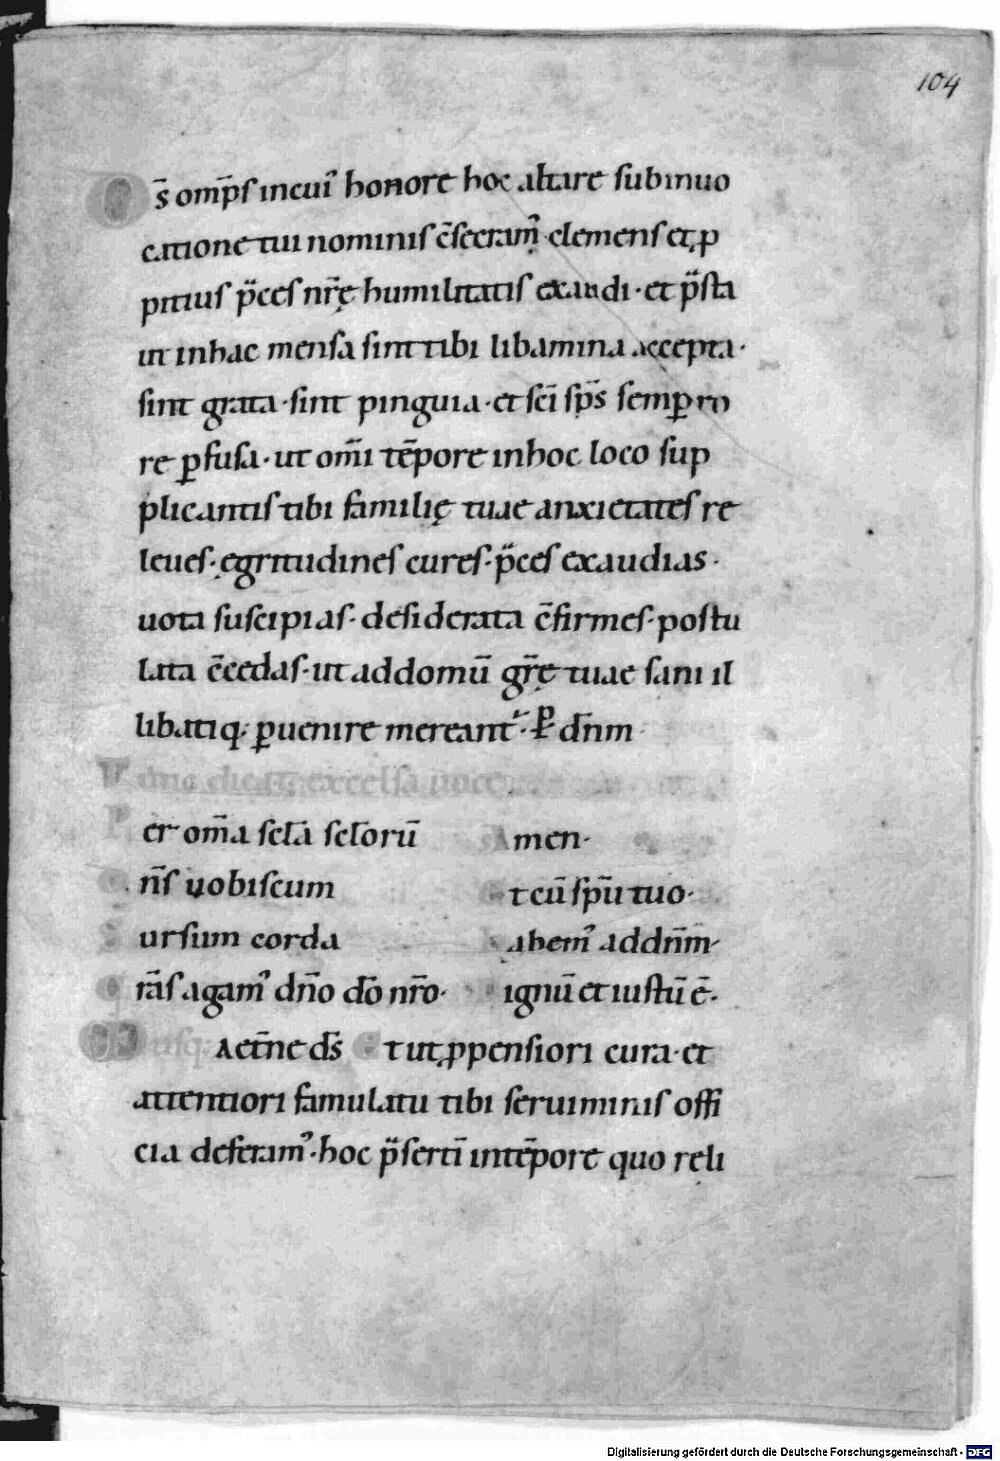 104
Ds̄ om̄ps incui᾽ honore hoc altare subinuo
catione tui nominis c̄secram᾽ clemens et ꝓ
pitius p̄ces nr̄ę humilitatis exaudi · et p̄sta
ut inhac mensa sint tibi libamina accepta ·
sint grata · sint pinguia · et sc̄i sp̄s semꝑ ro
re ꝑfusa · ut om̄i tēpore inhoc loco sup
plicantis tibi familię tuae anxietates re
leues · ęgritudines cures · p̄ces exaudias ·
uota suscipias · desiderata c̄firmes · postu
lata c̄cedas · ut addomū gr̄ę tuae sani il
libatiq; ꝑuenire mereant᾽ · P dn̄m
dicat excelsa uoce
Per om̄a scl̄a scl̄orū Amen ·
Dn̄s uobiscum Et cū sp̄u tuo ·
Sursum corda Habem᾽ addn̄m
Gr̄as agam᾽ dn̄o dō nr̄o · Dignū et iustū ē ·
usq; Aet̄ne ds̄ Et ut ꝓpensiori cura · et
attentiori famulatu tibi seruiminis offi
cia deferam᾽ · hoc p̄sertī intēpore quo reli
Digitalisierung gefördert durch die Deutsche Forschungsgemeinschaft - DFG